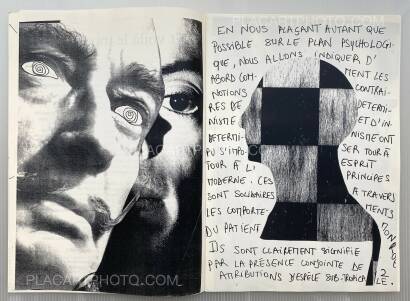 EN NOUS PLAÇANT AUTANT QUE
POSSIBLE SUR LE PLAN PSYCHOLOGI-
QUE, NOUS ALLONS INDIQUER D'
ABORD COM- MENT LES
NOTIONS CONTRAI-
RES DE DETERMI-
NISME ET D'IN-
DETERMI- NISME ONT
PU S'IMPO- SER TOUR À
TOUR À L' ESPRIT
MODERNE. CES PRINCIPES
SONT SOLIDAIRES A TRAVERS
LES COMPORTE- MENTS
DU PATIENT
ILS SONT CLAIREMENT SIGNIFIE
PAR LA PRÉSENCE CONJOINTE DE
ATTRIBUTIONS D'ESPÈCE SUB-TROPICALE.
2
PLACARTPHOTO.COM
PLACARTPHOTO.COM
PLACARTPHOTO.COM